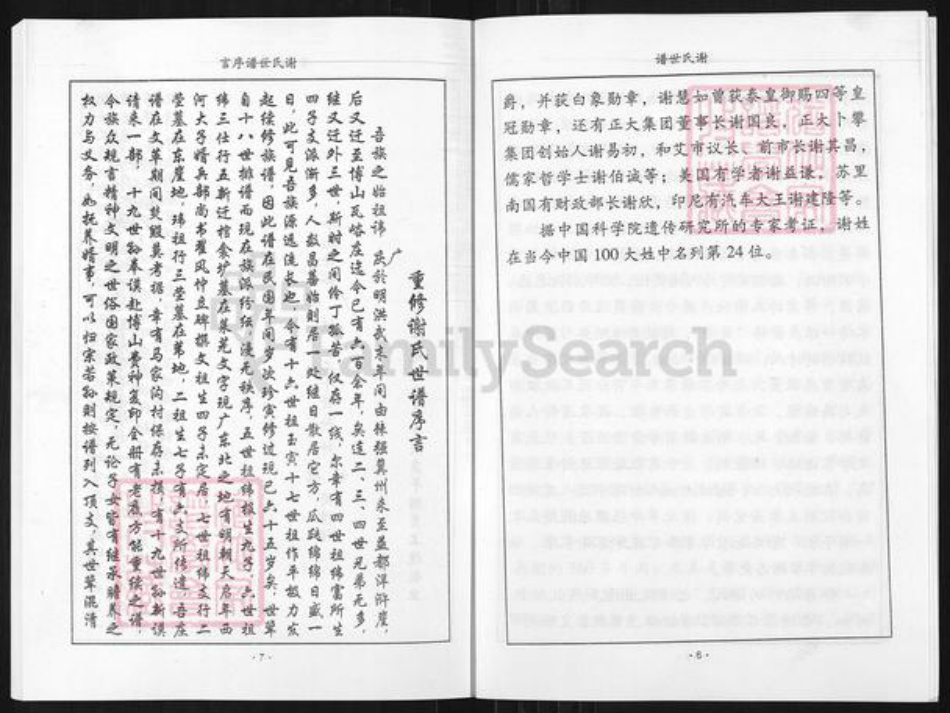 谢氏世谱
爵，并获白象勋章，谢慧如曾获泰皇御赐四等皇
冠勋章，还有正大集团董事长谢国良，正大卜擎
集团创始人谢易初，和艾市议长、前市长谢其昌，
儒家哲学士谢伯诚等；美国有学者谢益谦，苏里
南国有财政部长谢欣，印尼有汽车大王谢建隆等。
据中国科学院遗传研究所的专家考证，谢姓
在当今中国100大姓中名列第24位。
·6·
谢氏世谱序言
重修谢氏世谱序言
吾族之始祖讳 英於明洪武末年间由棘强冀州来至益都洋浒崖，
后又迁至博山瓦峪庄迄今已有六百余年，矣迨二、三、四世兄弟无多，
继又迁外三世，斯时之间伶丁孤苦，仅存一线，尔幸有四世祖讳富所生
四子支派渐多，人数昌善怡则居一处继日散居它方，瓜瓞绵绵日盛一
日，此可见吾族源远流长也。今有十六世祖玉寅十七世祖作平极力发
起续修族谱，因此谱在民国年间岁次珍寅修过现已六十五岁矣，世辈
自十八世排谱而现在族派纷纭漫无秩序，五世祖讳 根生九子，六世祖
讳三仕行五新迁棺食坟墓在 茔文字现 广东北之地有明朝天启年西
河大子婿兵部尚书翟凤仲立碑撰文祖生四子未定居，七世祖讳 支行二
茔墓在东崖地，玮祖行三茔墓在第地，二祖 生七子有六支所传遗，吾庄
谱在文革期间焚毁莫考据，幸有马家沟村保存未损，有十九世孙新误
请来一部，十九世孙奉误赴博山费神复印全册有老底方能重续之谱，
今族众规言精神文明之世俗国家政策规定，无论子女皆有继承赡养之
权力与义务，如抚养婿事，可以归宗若孙则按谱列入顶支，其世辈混清
·7·
FamilySearch